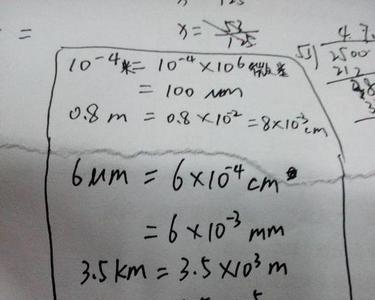 x = 53/125
=
53) 2500
212
10⁻⁴米 = 10⁻⁴×10⁶微米
= 100 um
0.8 m = 0.8×10⁻² = 8×10⁻³ cm
6 um = 6×10⁻⁴ cm
= 6×10⁻³ mm
3.5 km = 3.5×10³ m